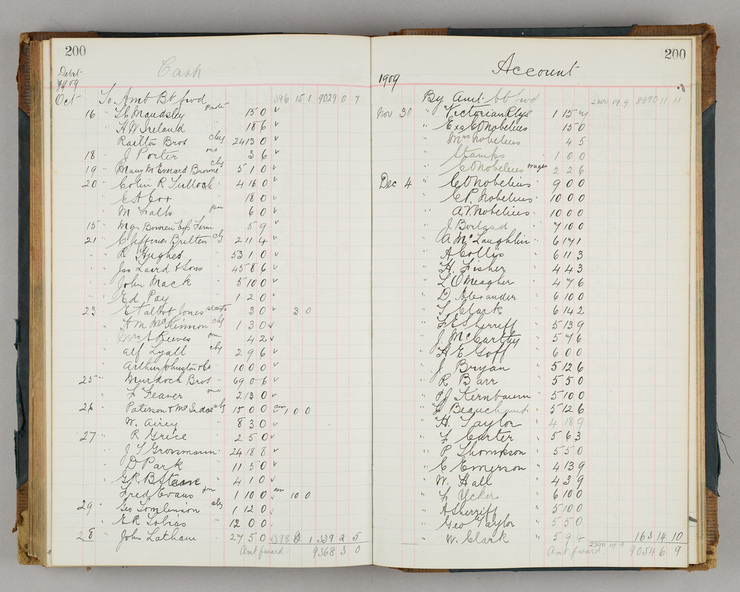 200
Cash
Debit
1909
Oct To Amt Bt fwd 396 15 1 9029 0 7
16 " Maudsley 15 0
" H W Ireland 18 6
" Railton Bros chq 24 13 0
18 " J Porter 3 6
19 " Mary M Everard Browne chq 5 1 0
20 " Colin R Tulloch 4 16 0
" E A Cox 18 0
" M 6 0
15 " 5 9
21 " Britten chq 2 11 4
" R Hughes 53 1 0
" Jas Laird & Sons 45 8 6
" John Mack 5 10 0
" Ed Pay 1 2 0
23 " E Talbot Jones 3 0 3 0
" A M McKinnon chq 1 3 0
" Reeves 4 2
" Alf Lyall chq 2 9 6
" Arthur 10 0 0
25 " Murdoch Bros 69 0 6
" F Feaver 2 13 0
26 " Paterson & chq 15 0 0 1 0 0
" W. Airey 8 3 0
27 " R Grice 2 5 0
" J T Grossmann 24 18 8
" D Park 11 5 0
" G. R. B. Steane 4 1 0
" Fred Evans 1 10 0 10 0
29 " Geo Tomlinson chq 1 12 0
" E R Tobias 12 0 0
28 " John Latham 27 5 0 339 2 5
Amt fward 9368 3 0
200
Account
1909
By Amt bt fwd 8890 11 11
Nov 30 " Victorian Rlys 1 15
" Exs C Nobelius 15 0
" Mrs Nobelius 4 5
" Stamps 1 0 0
" C Nobelius wages 2 2 6
Dec 4 " C Nobelius 9 0 0
" C P. Nobelius 10 0 0
" A. Nobelius 10 0 0
" J Borland 7 10 0
" A McLaughlin 6 17 1
" A Collis 6 11 3
" H. Fisher 4 4 3
" L O'Meagher 4 7 6
" D Alexander 6 10 0
" T. Clark 6 14 2
" F E Sherriff 5 13 9
" J McCarthy 5 7 6
" H E Goff 6 0 0
" J Bryan 5 12 6
" R Barr 5 5 0
" Kernbaum 5 10 0
" L Beauchamp 5 12 6
" H. Taylor 4 18 9
" F Carter 5 6 3
" P Thompson 5 5 0
" C Emerson 4 13 9
" W. Hall 4 3 9
" F Ucker 6 10 0
" A Sherriff 5 10 0
" Geo Taylor 5 5 0
" W. Clark 5 9 4 163 14 10
Amt fward 9054 6 9